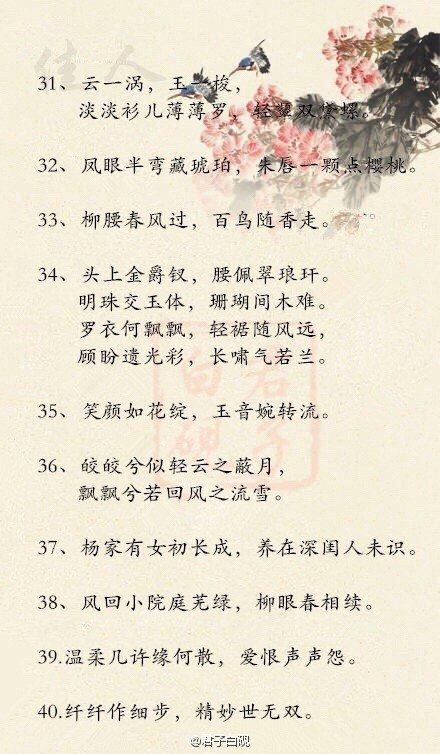 佳人
31、云一涡，玉一梭，
淡淡衫儿薄薄罗，轻颦双黛螺。
32、凤眼半弯藏琥珀，朱唇一颗点樱桃。
33、柳腰春风过，百鸟随香走。
34、头上金爵钗，腰佩翠琅玕。
明珠交玉体，珊瑚间木难。
罗衣何飘飘，轻裾随风远，
顾盼遗光彩，长啸气若兰。
35、笑颜如花绽，玉音婉转流。
36、皎皎兮似轻云之蔽月，
飘飘兮若回风之流雪。
37、杨家有女初长成，养在深闺人未识。
38、风回小院庭芜绿，柳眼春相续。
39.温柔几许缘何散，爱恨声声怨。
40.纤纤作细步，精妙世无双。
君子白砚
@君子白砚